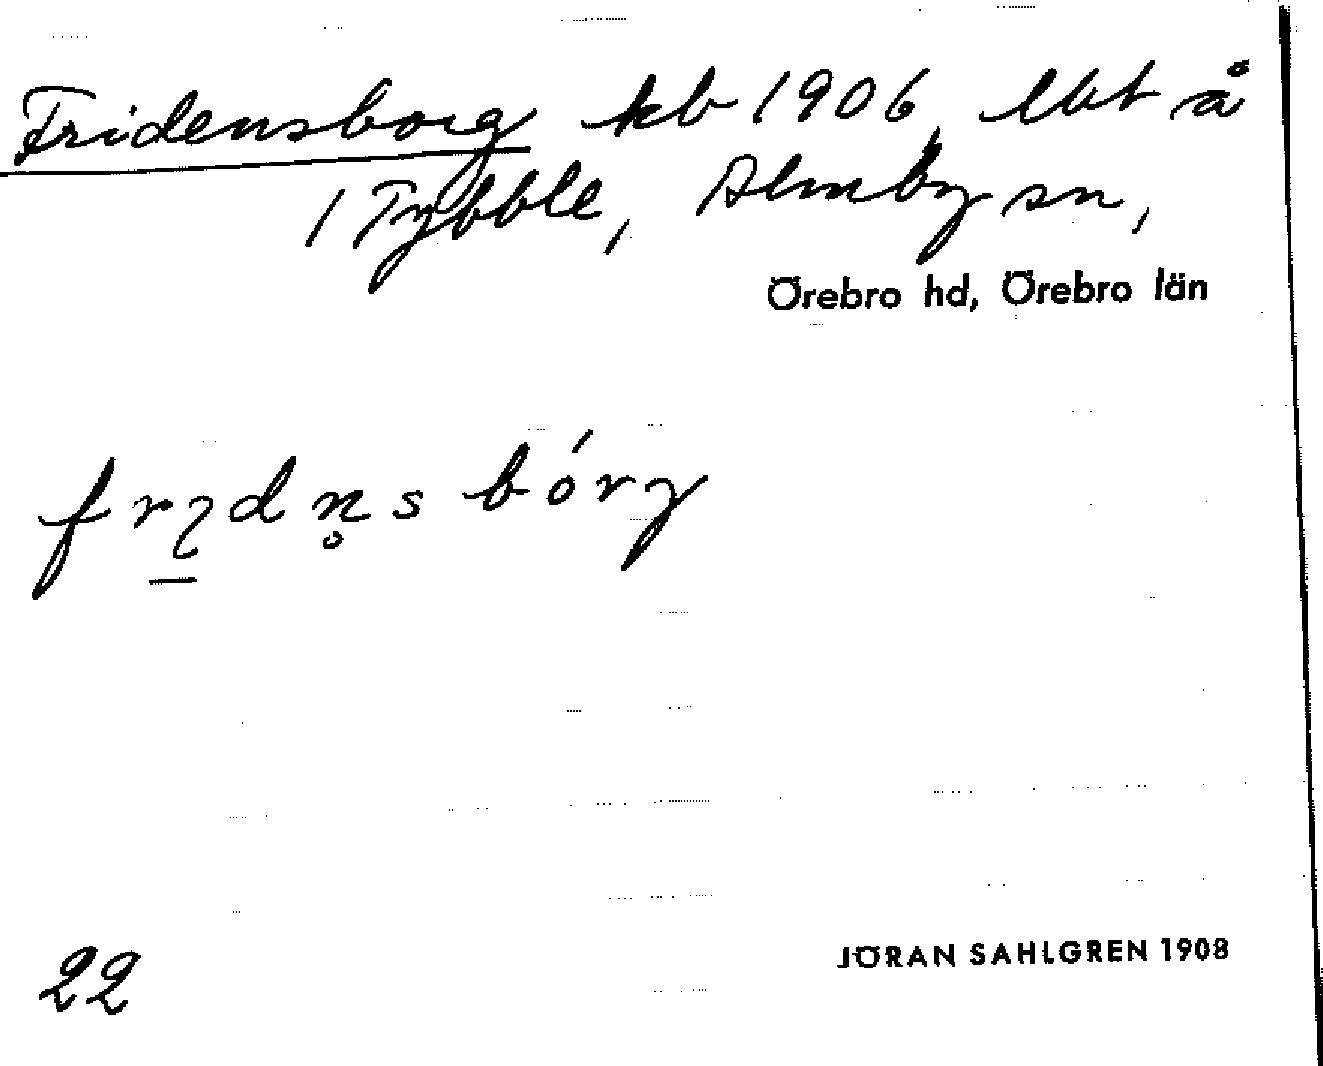 Fridensborg kb 1906, lbt å
1 Tybble, Almby sn,
Örebro hd, Örebro län
frɩdn̥s bórg
22
JÖRAN SAHLGREN 1908